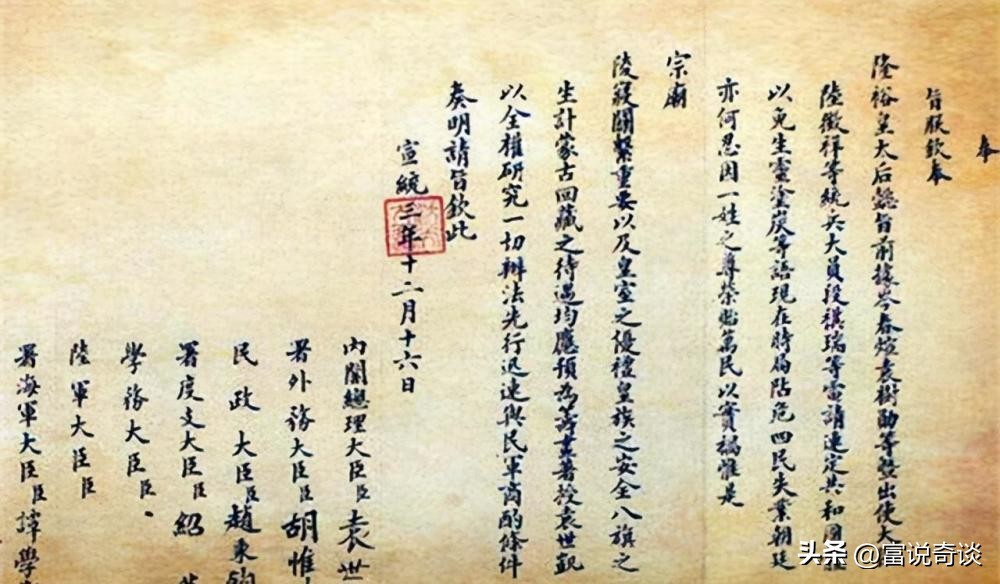 奉
旨朕欽奉
隆裕皇太后懿旨前據岑春煊袁樹勛等暨出使大臣
陸徵祥等統兵大員段祺瑞等電請速定共和國體
以免生靈塗炭等語現在時局阽危四民失業朝廷
亦何忍因一姓之尊榮貽萬民以實禍惟是
宗廟
陵寢關繫重要以及皇室之優禮皇族之安全八旗之
生計蒙古回藏之待遇均應預為籌畫著授袁世凱
以全權研究一切辦法先行迅速與民軍商酌條件
奏明請旨欽此
宣統三年十二月十六日
內閣總理大臣臣袁世
署外務大臣臣胡惟
民政大臣臣趙秉鈞
署度支大臣臣紹
學務大臣臣
陸軍大臣臣
署海軍大臣臣譚學
头条 @富说奇谈